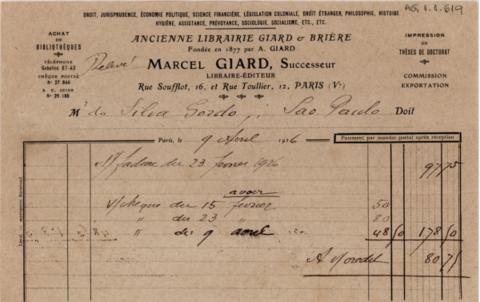 AG. 1. 1. 619
DROIT, JURISPRUDENCE, ÉCONOMIE POLITIQUE, SCIENCE FINANCIÈRE, LÉGISLATION COLONIALE, DROIT ÉTRANGER, PHILOSOPHIE, HISTOIRE
HYGIÈNE, ASSISTANCE, PRÉVOYANCE, SOCIOLOGIE, SOCIALISME, ETC., ETC.
ACHAT
DE
BIBLIOTHÈQUES
TÉLÉPHONE
Gobelins 07-43
CHÈQUE POSTAL
N° 27.980
R. C. SEINE
N° 29.180
ANCIENNE LIBRAIRIE GIARD & BRIÈRE
Fondée en 1877 par A. GIARD
Relevé
MARCEL GIARD, Successeur
LIBRAIRE-ÉDITEUR
Rue Soufflot, 16, et Rue Toullier, 12, PARIS (Vᵉ)
IMPRESSION
DE
THÈSES DE DOCTORAT
COMMISSION
EXPORTATION
Mʳ da Silva Gordo, Sao Paulo Doit
Paris, le 9 Avril 1926
Payement par mandat postal après réception
N/facture du 23 fevrier 1926 97 75
avoir
V/cheque du 15 fevrier 50
" du 23 " 80
" du 9 avril 48 50 178 50
A V/credit 80 75